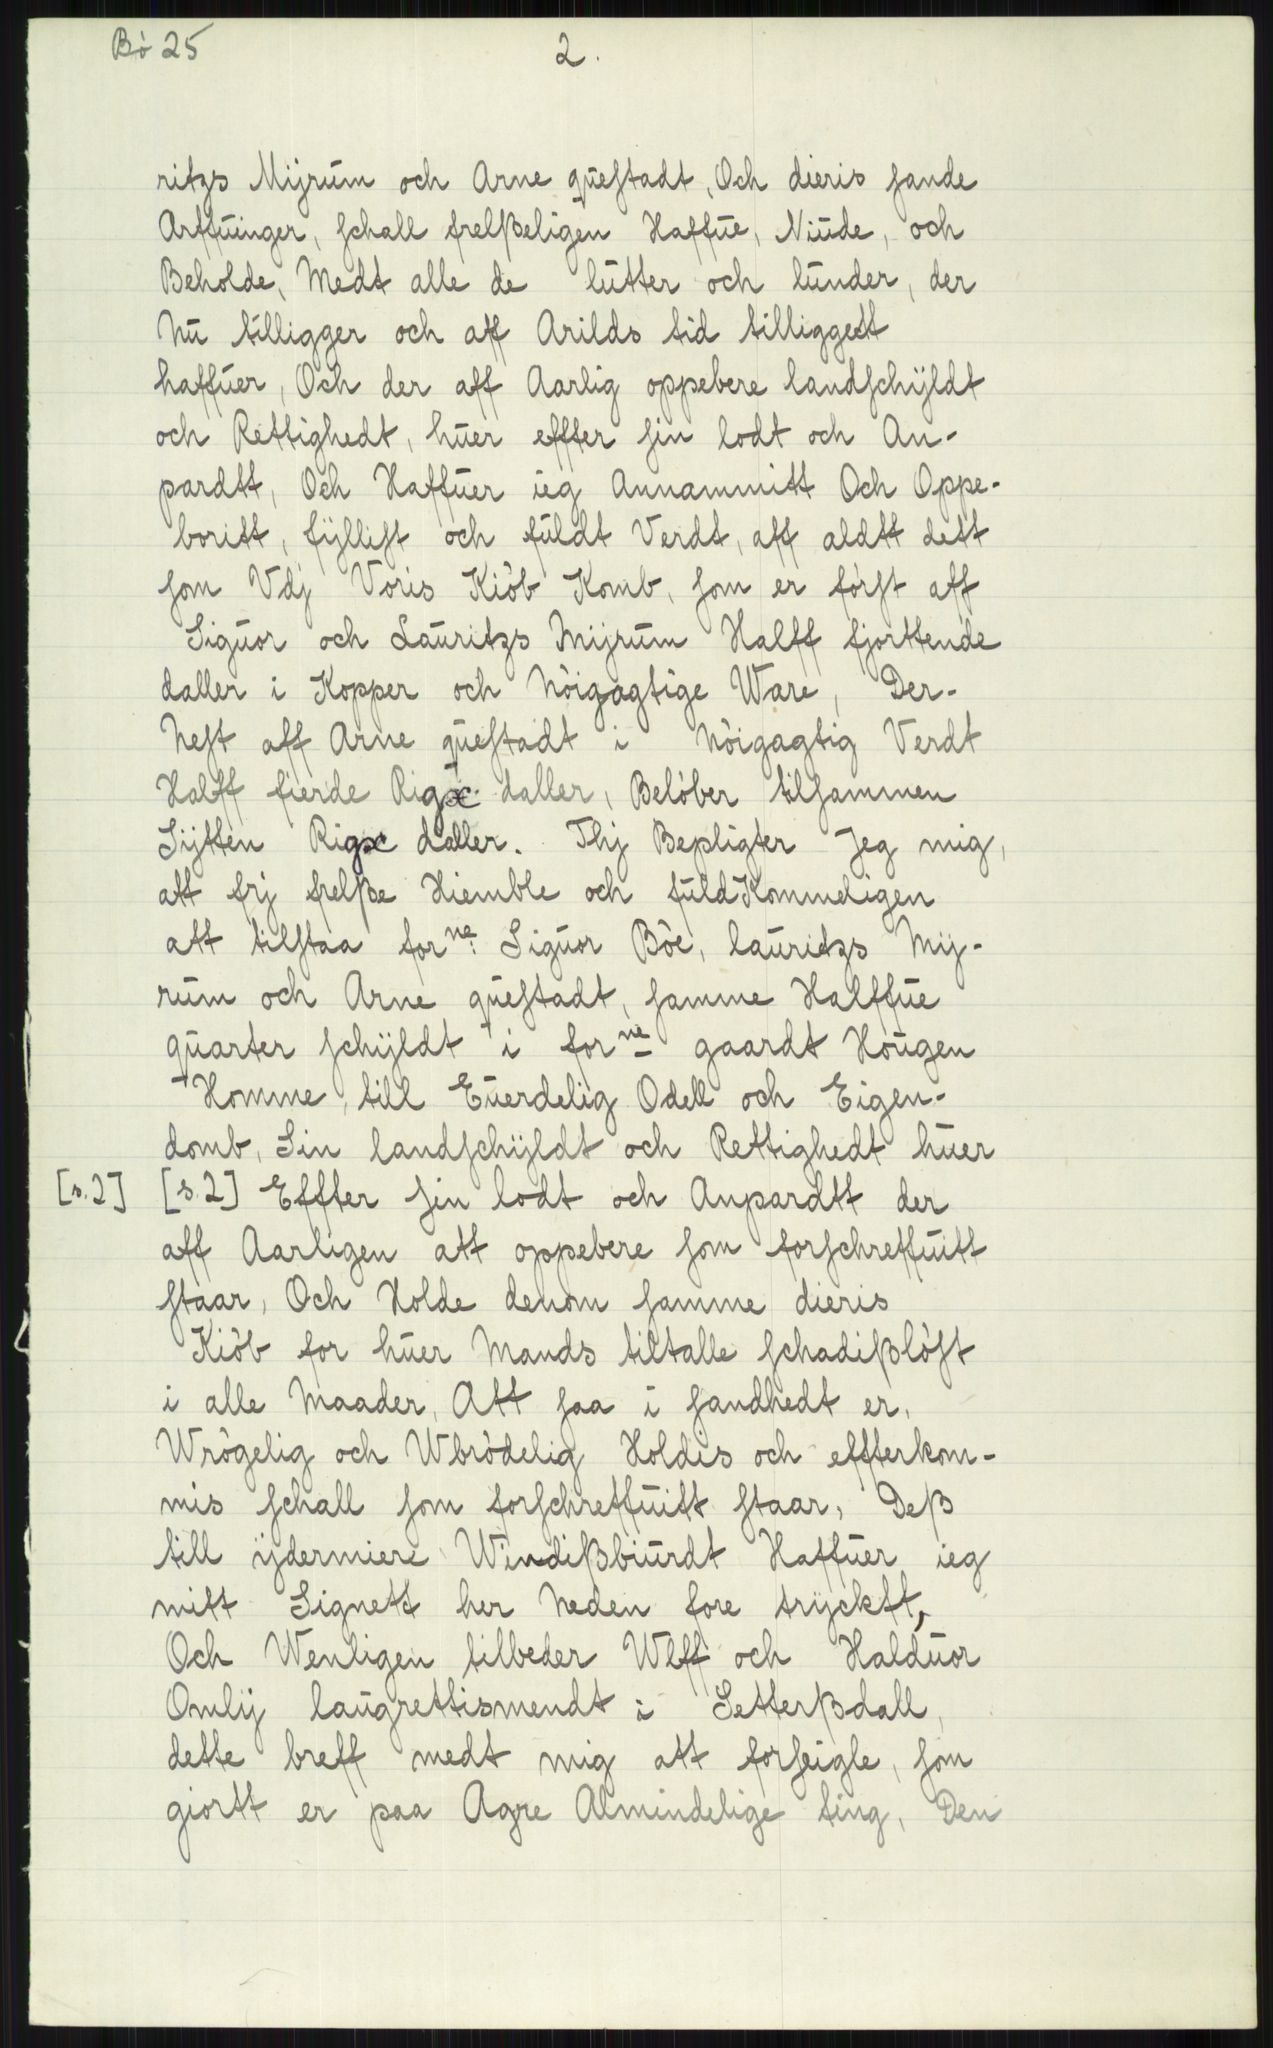 Bö 25
2.
ritzs Mijrum och Arne questadt, Och dieris sande
Arffuinger, schall frelßeligen Haffue, Niude, och
Beholde, Medt alle de lutter och lunder, der
Nu tilligger och aff Arilds tid tilliggett
haffuer, Och der aff Aarlig oppebere landschyldt
och Rettighedt, huer effter sin lodt och An-
pardtt, Och Haffuer ieg Annammitt Och Oppe-
boritt, fyllist och fuldt Verdt, aff aldtt dett
som Vdj Voris Kiöb Komb, som er först aff
Siguor och Lauritzs Mijrum Halff fjorttende
daller i Kopper och Nöigagtige Ware, Der-
Nest aff Arne questadt i Nöigagtig Verdt
Halff fierde Rigx daller, Belöber tilsammen
Sijtten Rigx daller. Thj Bepligter Jeg mig,
att frj frelße Hiemble och fuldKommeligen
att tilstaa forne: Siguor Böe, lauritzs Mij-
rum och Arne questadt, samme Halffue
quarter schyldt i forne gaardt Hougen
Homme, till Euerdelig Odell och Eigen-
domb, Sin landschyldt och Rettighedt huer
[s.2] [s.2] Effter sin lodt och Anpardtt der
aff Aarligen att oppebere som forschreffuitt
staar, Och Holde denom samme dieris
Kiöb for huer Mands tiltalle schadißlöst
i alle Maader, Att saa i sandhedt er,
Wrögelig och Wbrödelig Holdis och effterkom-
mis schall som forschreffuitt staar, Deß
till ijdermiere Windißbiurdt Haffuer ieg
mitt Signett her Neden fore tryckt,
Och Wenligen tilbeder Wlff och Halduor
Omlij laugrettismendt i Setterßdall,
dette breff medt mig att forseigle, som
giortt er paa Agre Almindelige ting, Den